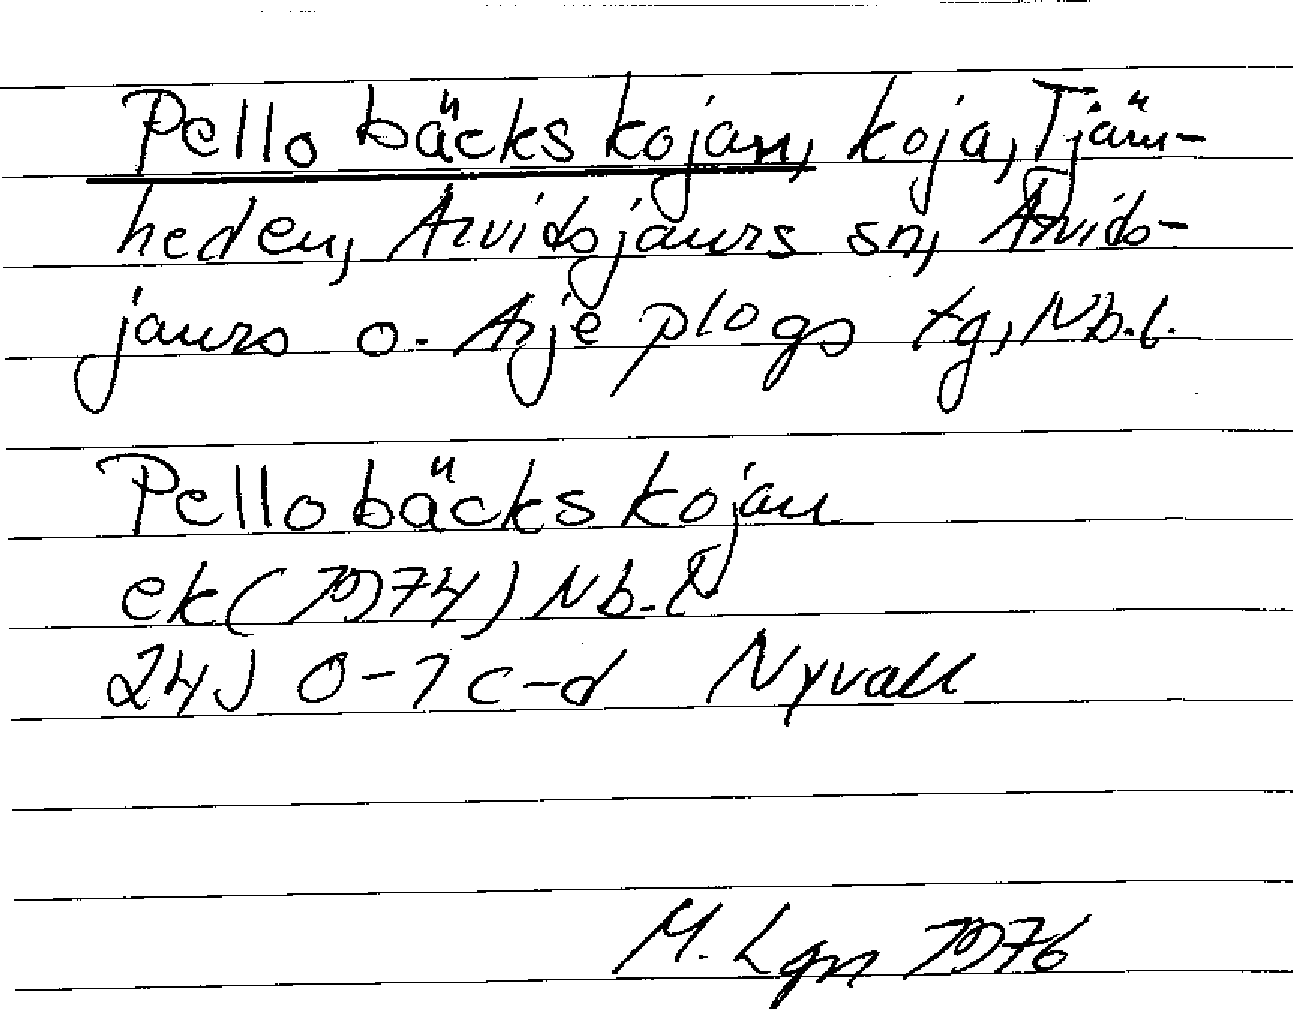 Pellobäckskojan, koja, Tjärn-
heden, Arvidsjaurs sn, Arvids-
jaurs o. Arjeplogs tg, Nb.l.
Pellobäckskojan
ek (1974) Nb.l
24J 0-1 c-d Nyvall
M. Lgn 1976